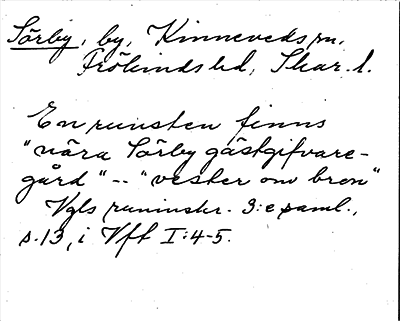 Sörby, by, Kinneveds sn,
Frökinds hd, Skar. l.
En runsten finns
"nära Sörby gästgifvare-
gård" -- "vester om bron"
Vgls runinskr. 3:e saml.,
s. 13, i Vft I:4-5.